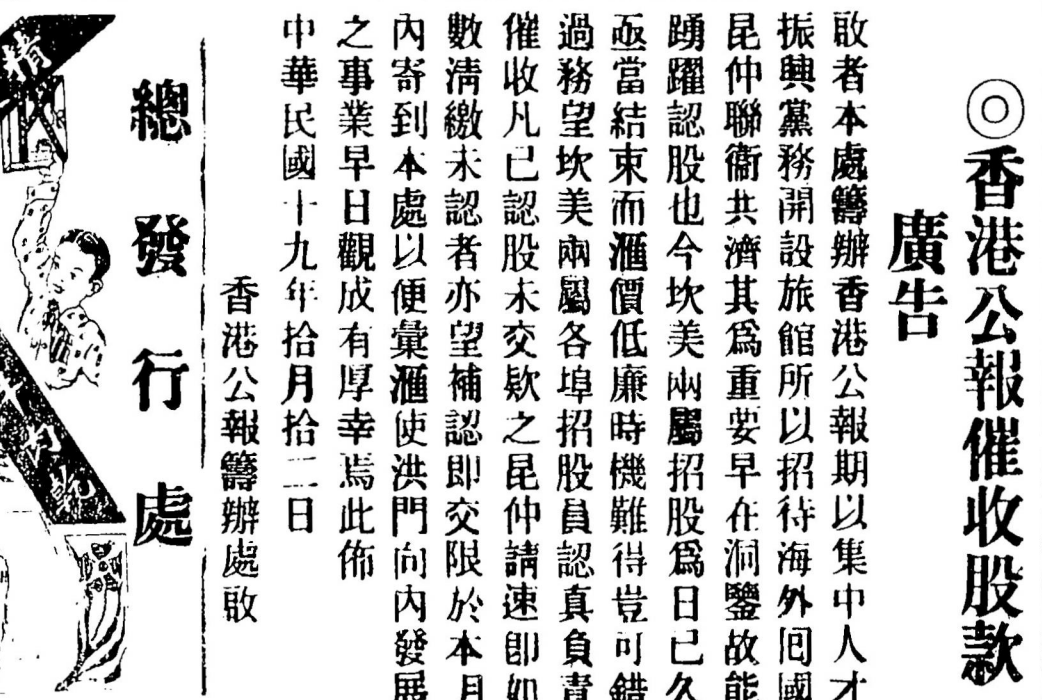 ◎香港公報催收股款
廣告
啟者本處籌辦香港公報期以集中人才
振興黨務開設旅館所以招待海外回國
昆仲聯衞共濟其爲重要早在洞鑒故能
踴躍認股也今坎美兩屬招股爲日已久
亟當結束而滙價低廉時機難得豈可錯
過務望坎美兩屬各埠招股員認真負責
催收凡已認股未交欵之昆仲請速卽如
數淸繳未認者亦望補認即交限於本月
內寄到本處以便彙滙使洪門向內發展
之事業早日觀成有厚幸焉此佈
中華民國十九年拾月拾二日
香港公報籌辦處啟
總發行處
精